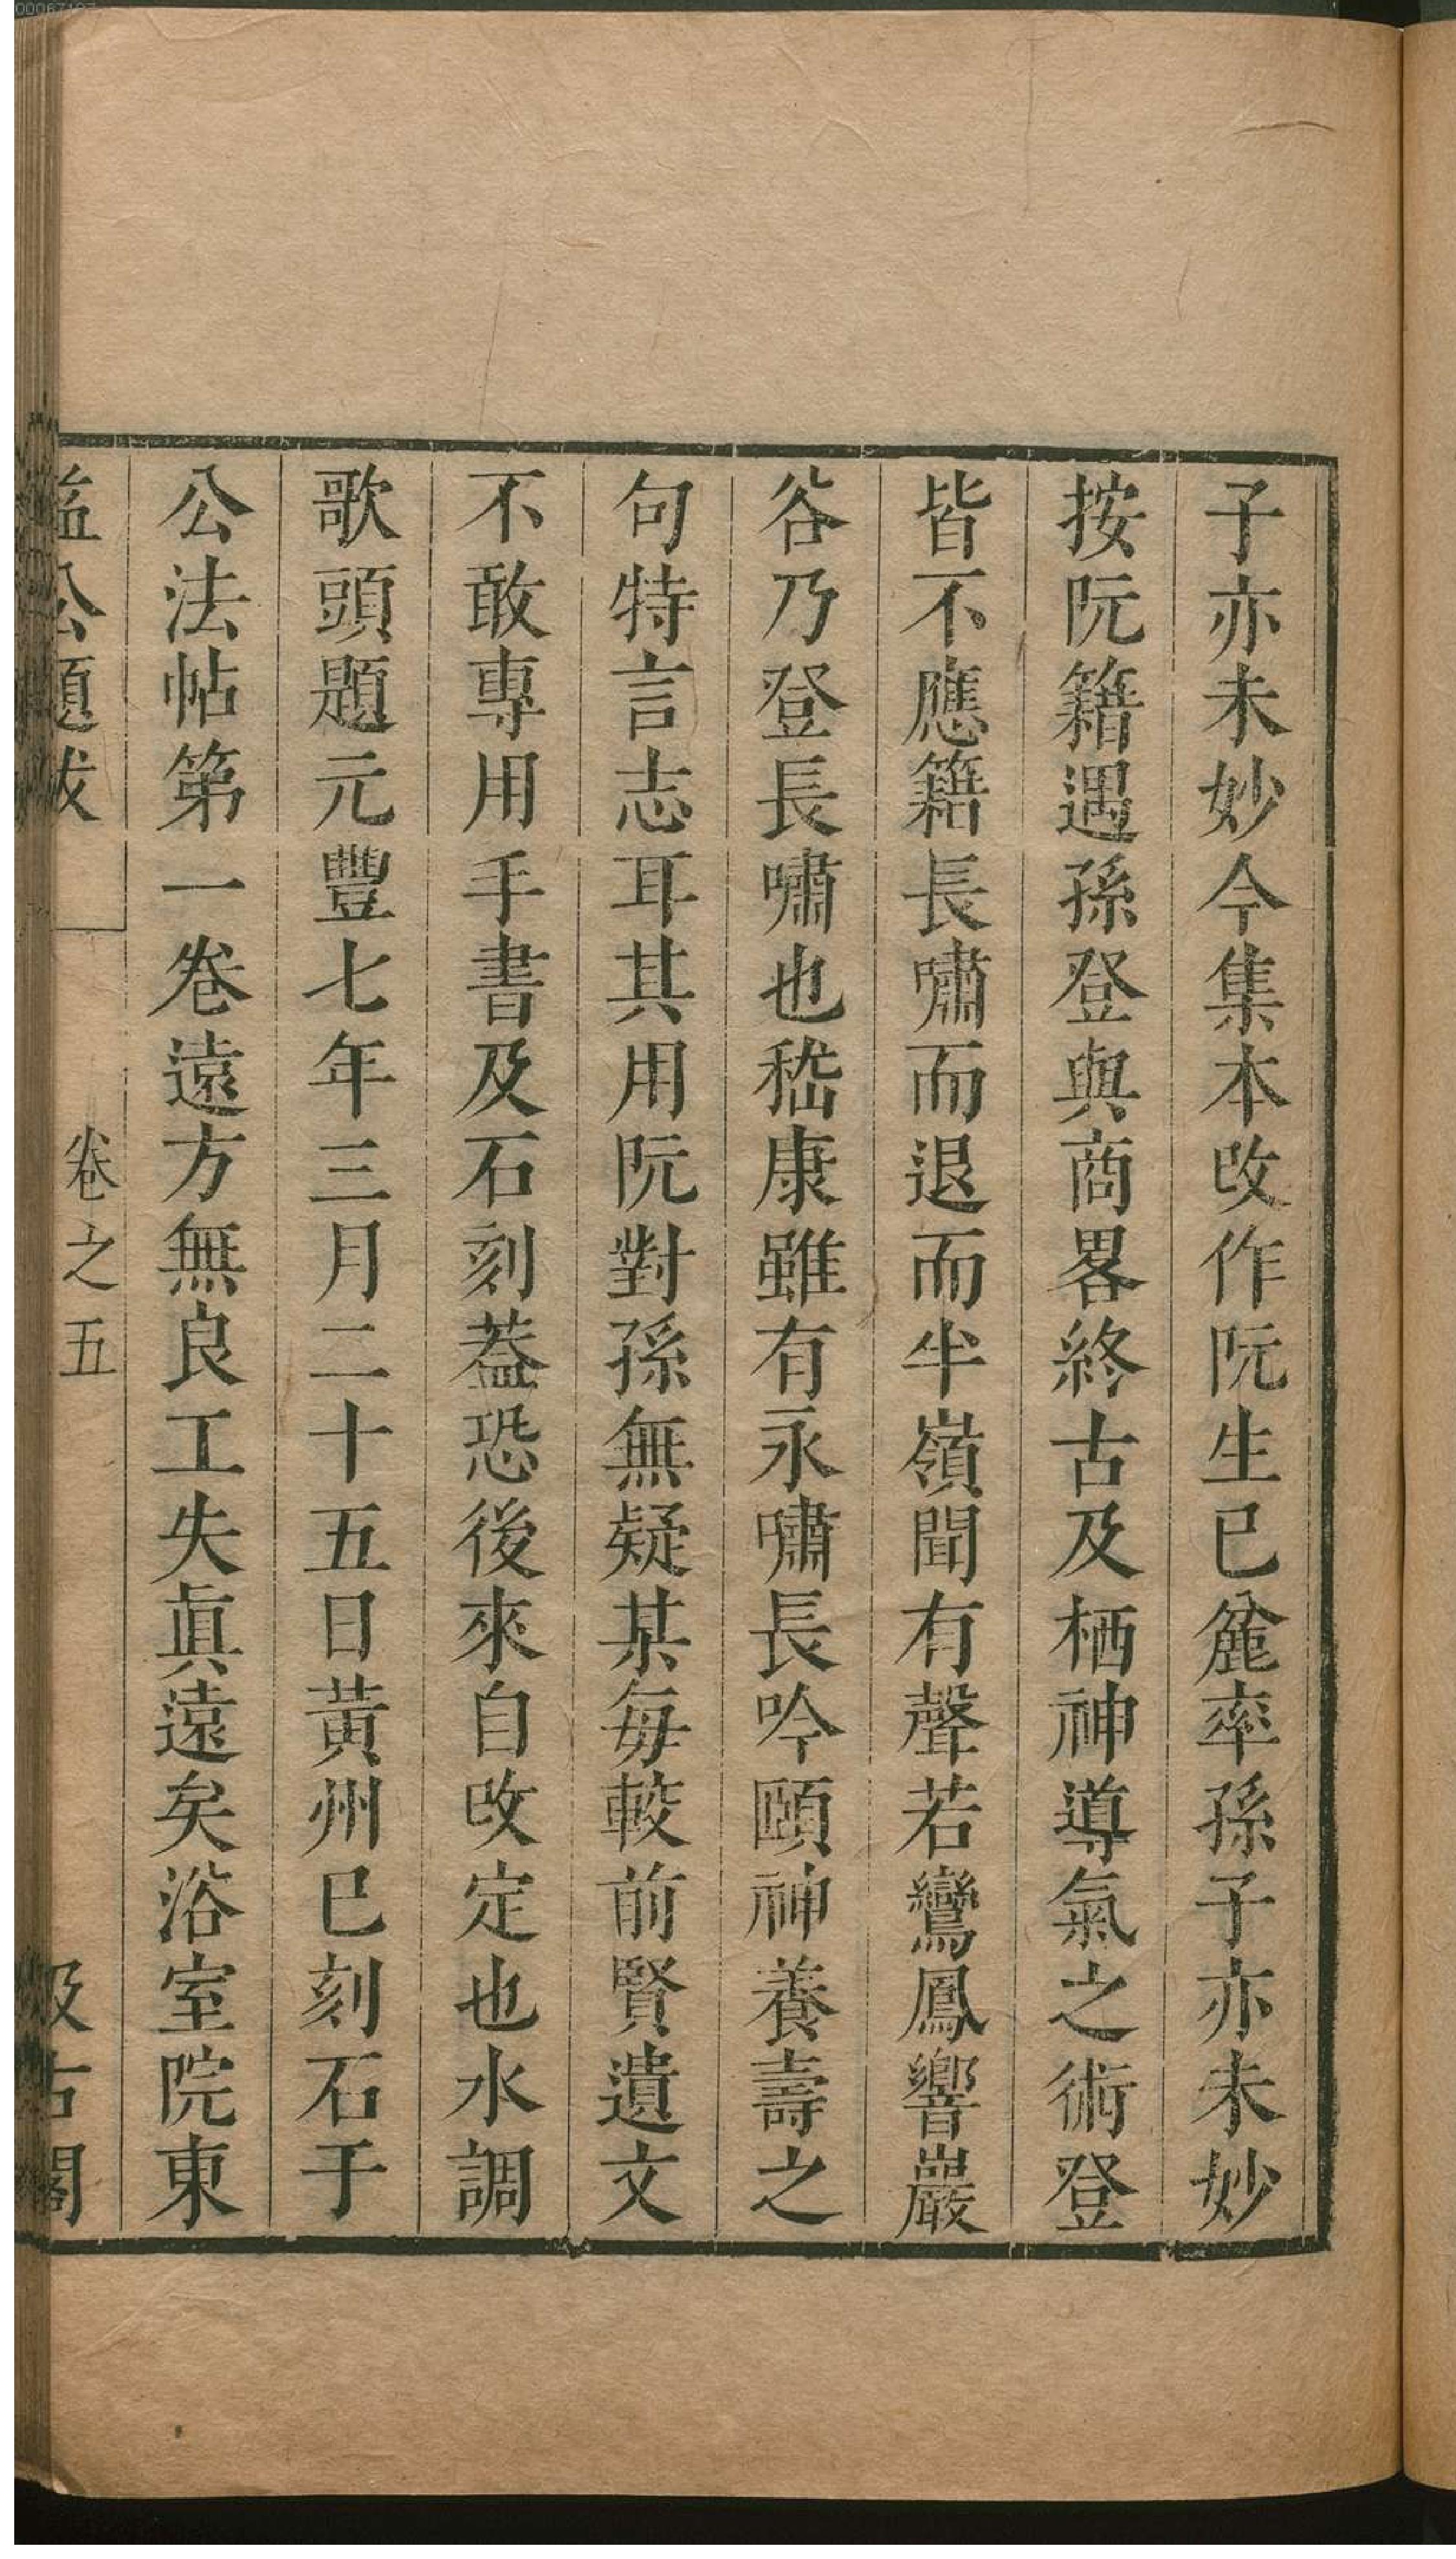 子亦未妙今集本改作阮生已麄率孫子亦未妙
按阮籍遇孫登與商畧終古及栖神導氣之術登
皆不應籍長嘯而退而半嶺聞有聲若鸞鳳響巖
谷乃登長嘯也嵇康雖有永嘯長吟頤神養壽之
句特言志耳其用阮對孫無疑某每較前賢遺文
不敢專用手書及石刻葢恐後來自改定也水調
歌頭題元豐七年三月二十五日黃州已刻石于
公法帖第一卷遠方無良工失眞遠矣浴室院東
益公題跋 卷之五 汲古閣
00067107